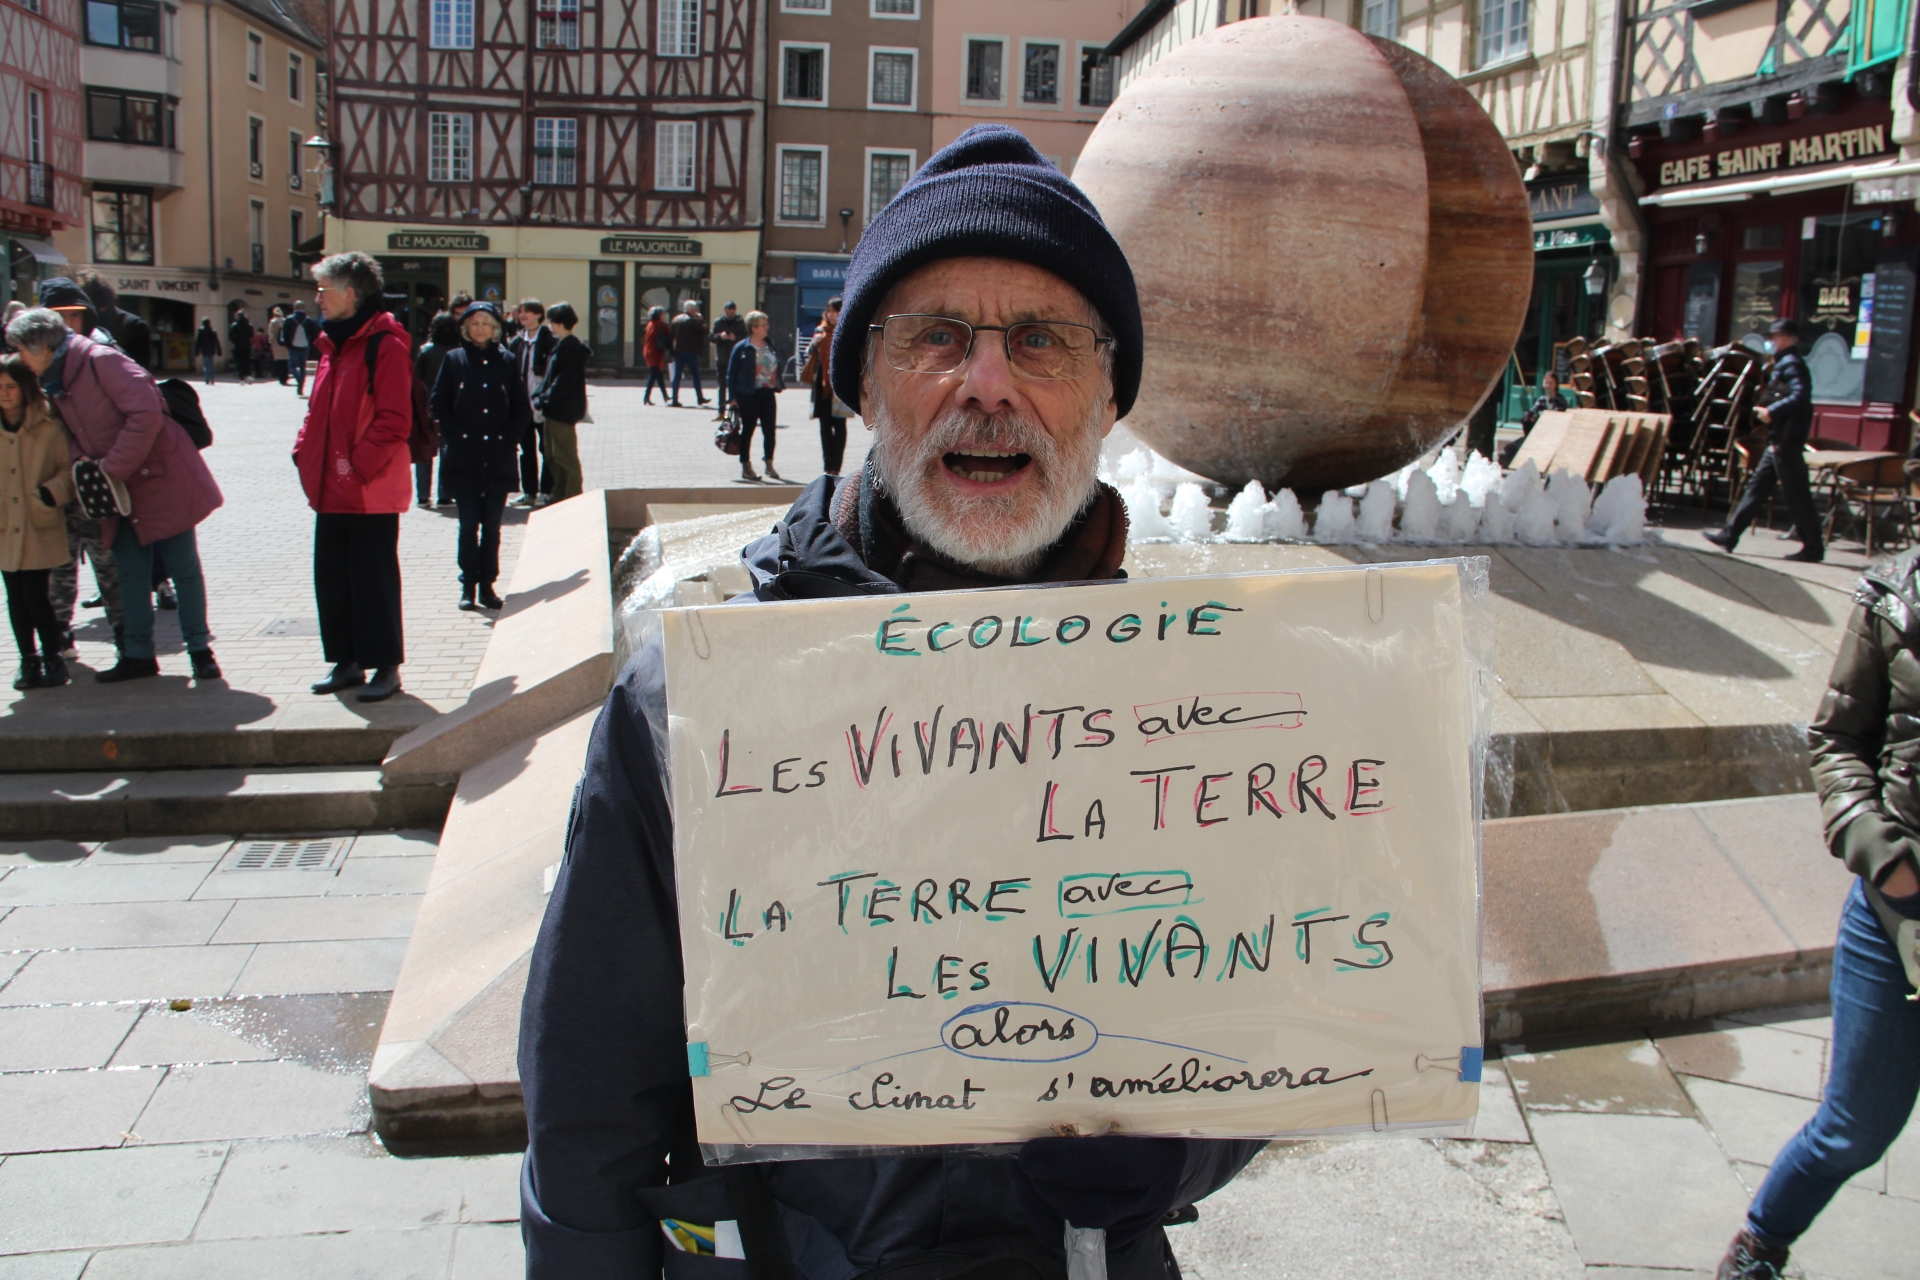 LE MAJORELLE
LE MAJORELLE
BAR
SAINT VINCENT
BAR À
CAFE SAINT MARTIN
BAR
BAR
ÉCOLOGIE
LES VIVANTS avec
LA TERRE
LA TERRE avec
LES VIVANTS
alors
Le climat s'améliorera